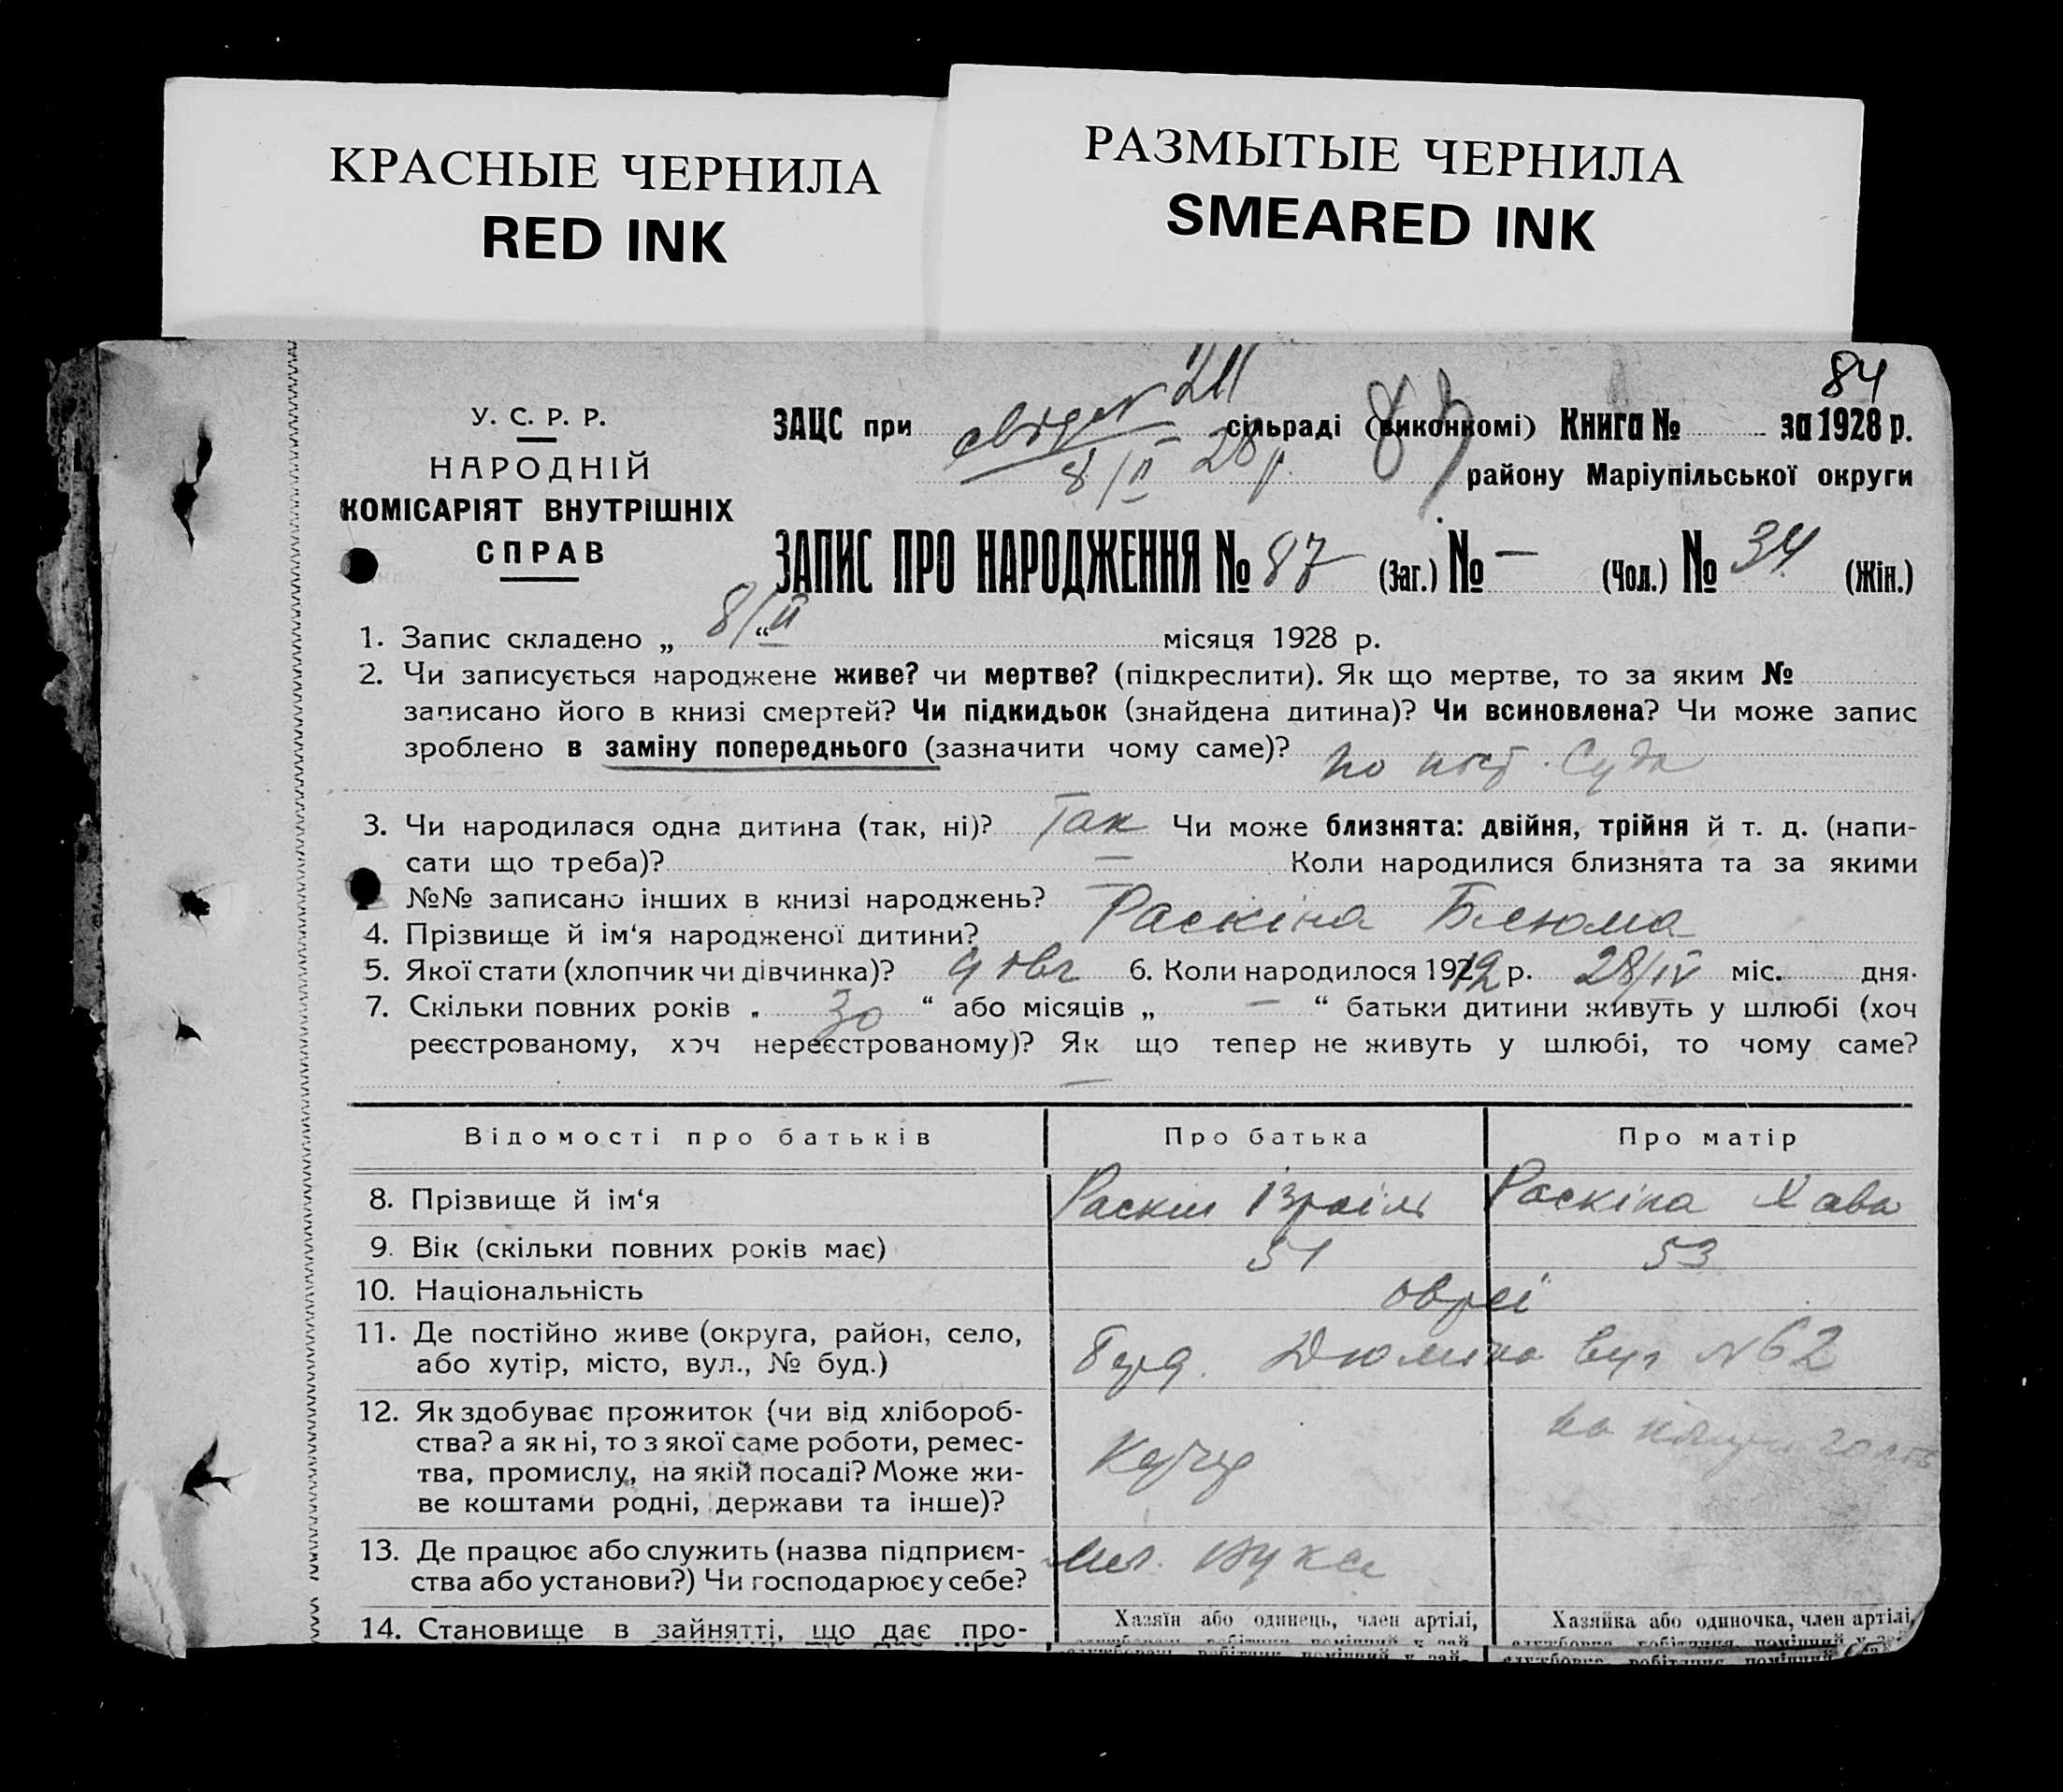 КРАСНЫЕ ЧЕРНИЛА
RED INK
РАЗМЫТЫЕ ЧЕРНИЛА
SMEARED INK
84
У. С. Р. Р.
НАРОДНІЙ
КОМІСАРІЯТ ВНУТРІШНІХ
СПРАВ
ЗАЦС при сільраді (виконкомі) Книга № за 1928 р.
8/II 28 р. району Маріупільської округи
ЗАПИС ПРО НАРОДЖЕННЯ № 87 (Заг.) № — (Чол.) № 34 (Жін.)
1. Запис складено „ 8/II “ місяця 1928 р.
2. Чи записується народжене живе? чи мертве? (підкреслити). Як що мертве, то за яким №
записано його в книзі смертей? Чи підкидьок (знайдена дитина)? Чи всиновлена? Чи може запис
зроблено в заміну попереднього (зазначити чому саме)? по пост. Суда
3. Чи народилася одна дитина (так, ні)? Так Чи може близнята: двійня, трійня й т. д. (напи-
сати що треба)? — Коли народилися близнята та за якими
№№ записано інших в книзі народжень? —
4. Прізвище й ім‘я народженої дитини? Раскіна Блюма
5. Якої стати (хлопчик чи дівчинка)? 6. Коли народилося 1912 р. 28/IV міс. дня.
7. Скільки повних років „ 30 “ або місяців „ — “ батьки дитини живуть у шлюбі (хоч
реєстрованому, хоч нереєстрованому)? Як що тепер не живуть у шлюбі, то чому саме?
—
Відомості про батьків Про батька Про матір
8. Прізвище й ім‘я Раскин Ізраіль Раскіна Хава
9. Вік (скільки повних років має) 51 53
10. Національність евреї
11. Де постійно живе (округа, район, село,
або хутір, місто, вул., № буд.) вул №62
12. Як здобуває прожиток (чи від хлібороб-
ства? а як ні, то з якої саме роботи, ремес-
тва, промислу, на якій посаді? Може жи-
ве коштами родні, держави та інше)?
13. Де працює або служить (назва підприєм-
ства або установи?) Чи господарює у себе?
14. Становище в зайнятті, що дає про- Хазяїн або одинець, член артілі, Хазяйка або одиночка, член артілі,